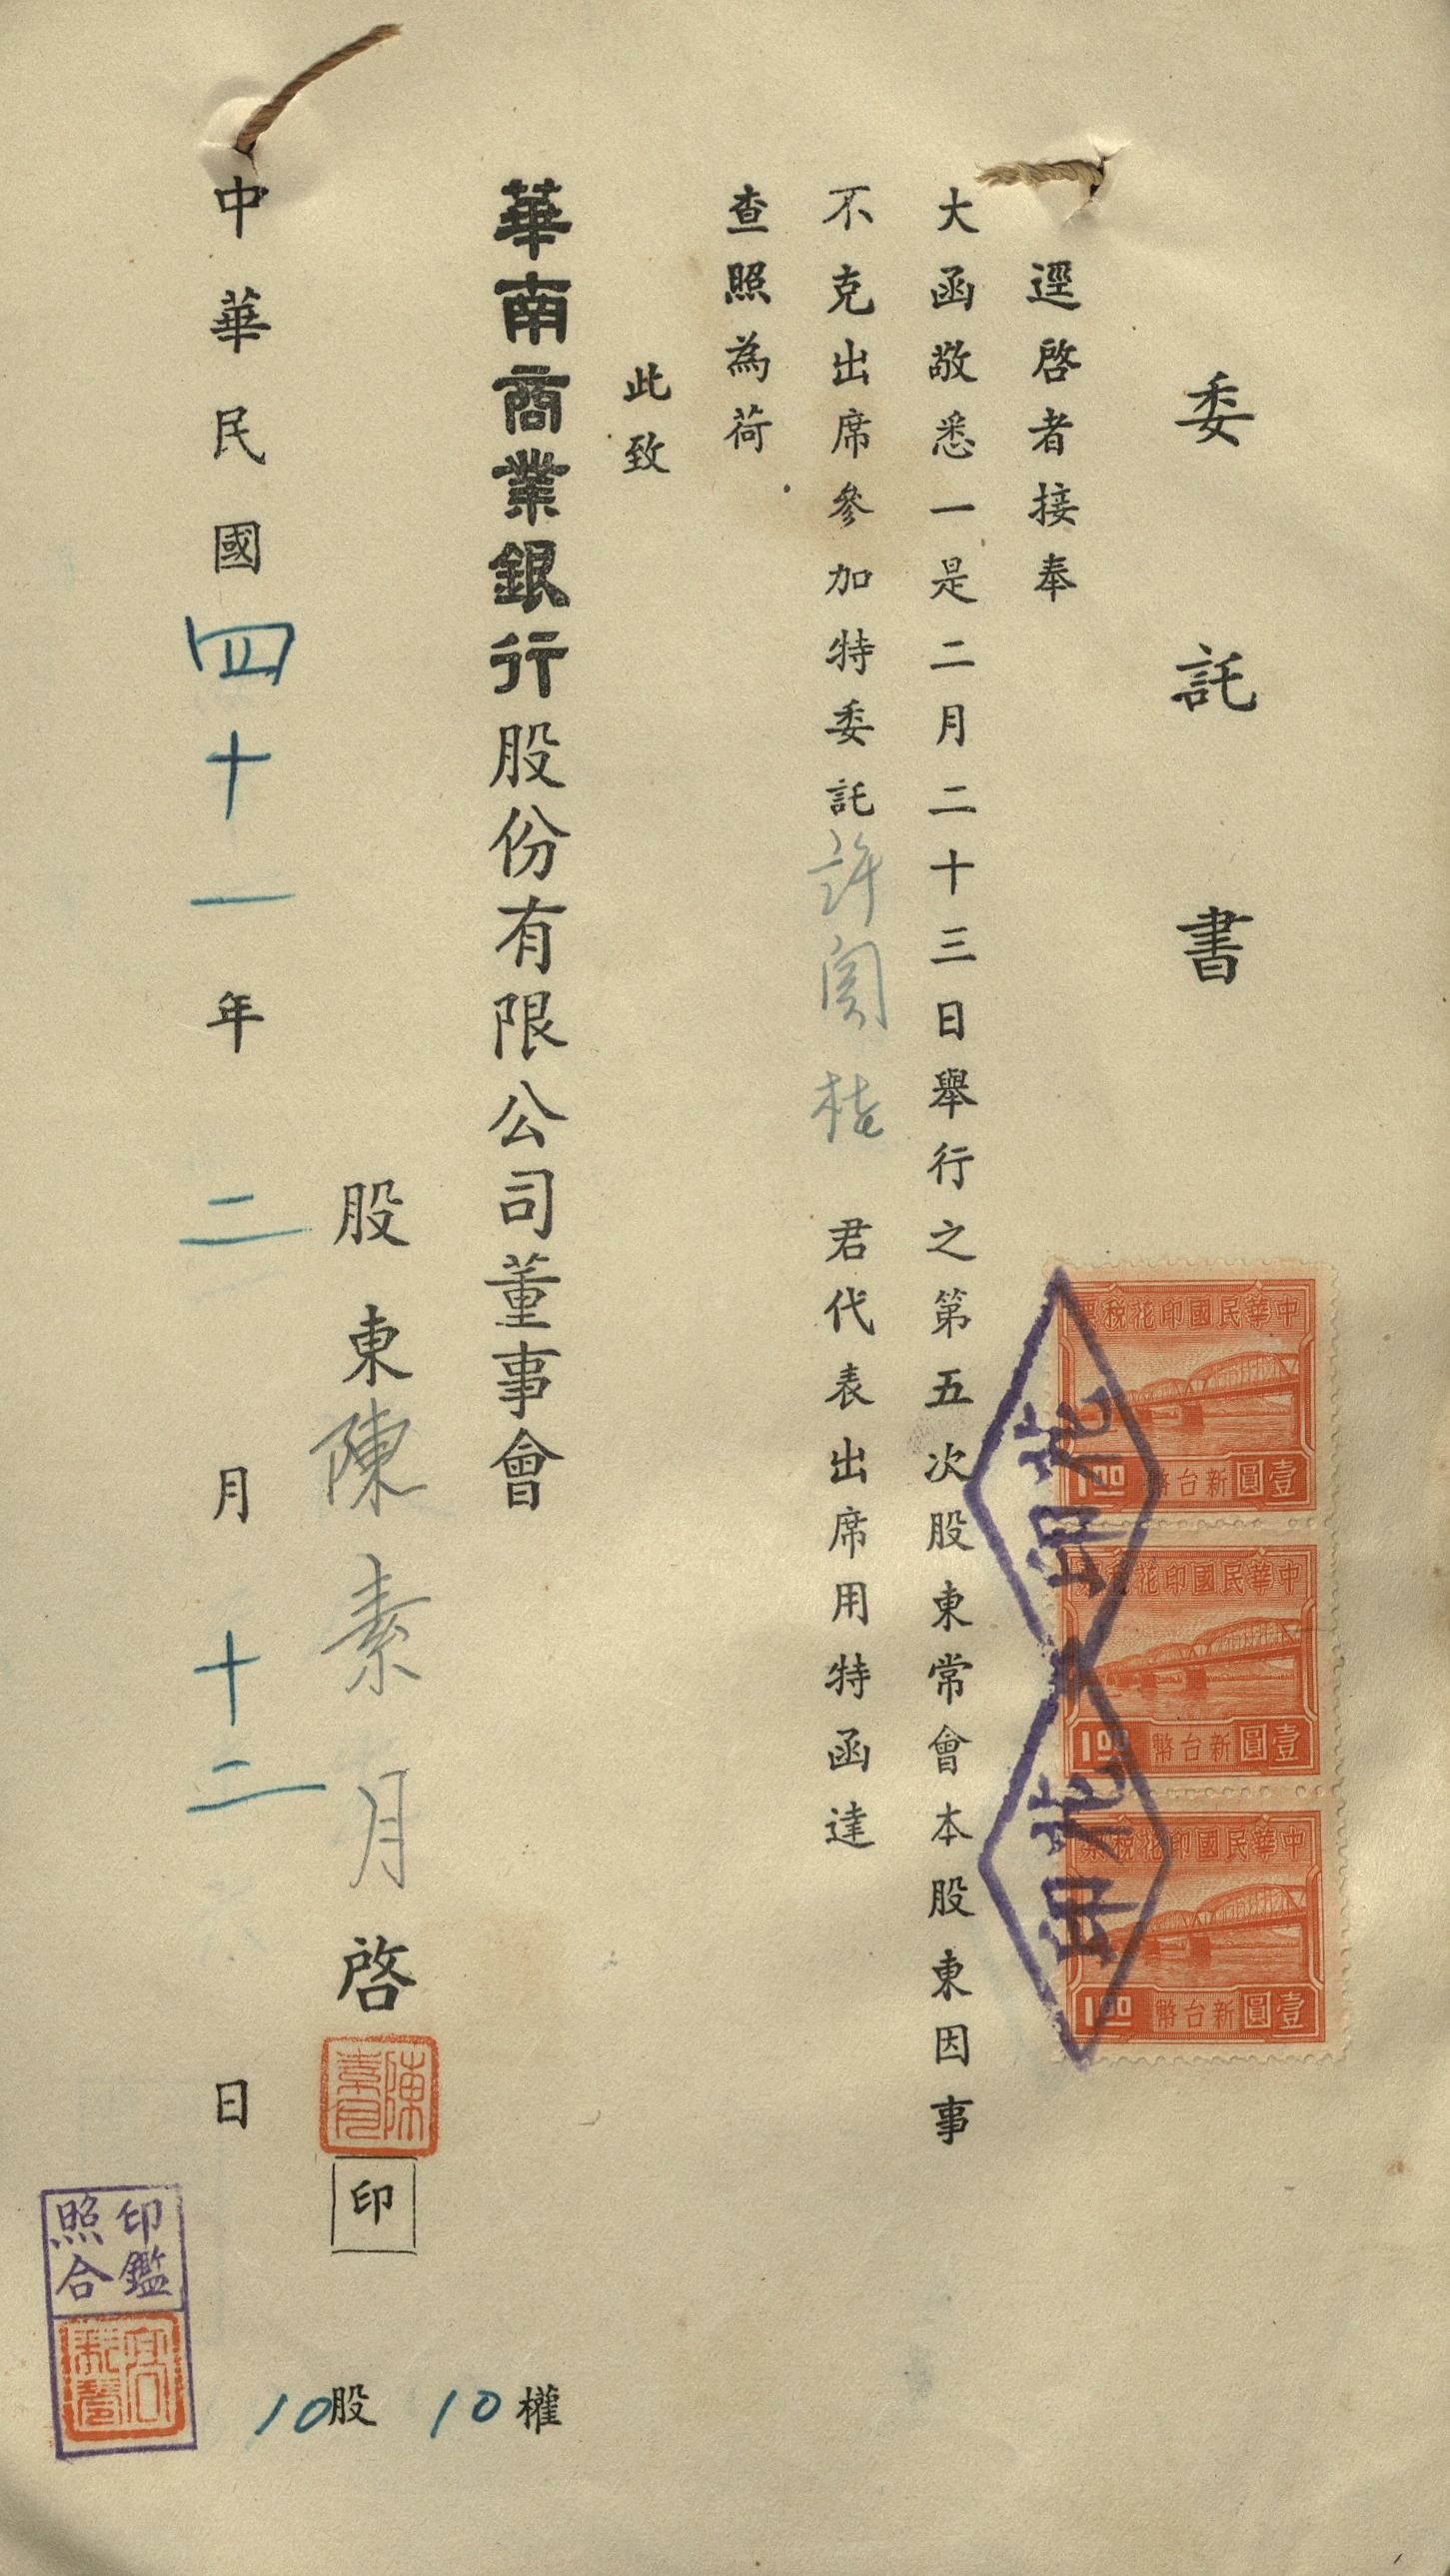 委託書
逕啓者接奉
大函敬悉一是二月二十三日舉行之第五次股東常會本股東因事
不克出席參加特委託許 桂 君代表出席用特函達
查照為荷
此致
華南商業銀行股份有限公司董事會
股東陳素月啓
印
中華民國四十一年二月十二日
10股 10權
中華民國印花稅票
1.00 新台幣壹圓
中華民國印花稅票
1.00 新台幣壹圓
中華民國印花稅票
1.00 新台幣壹圓
陳素月
印鑑照合